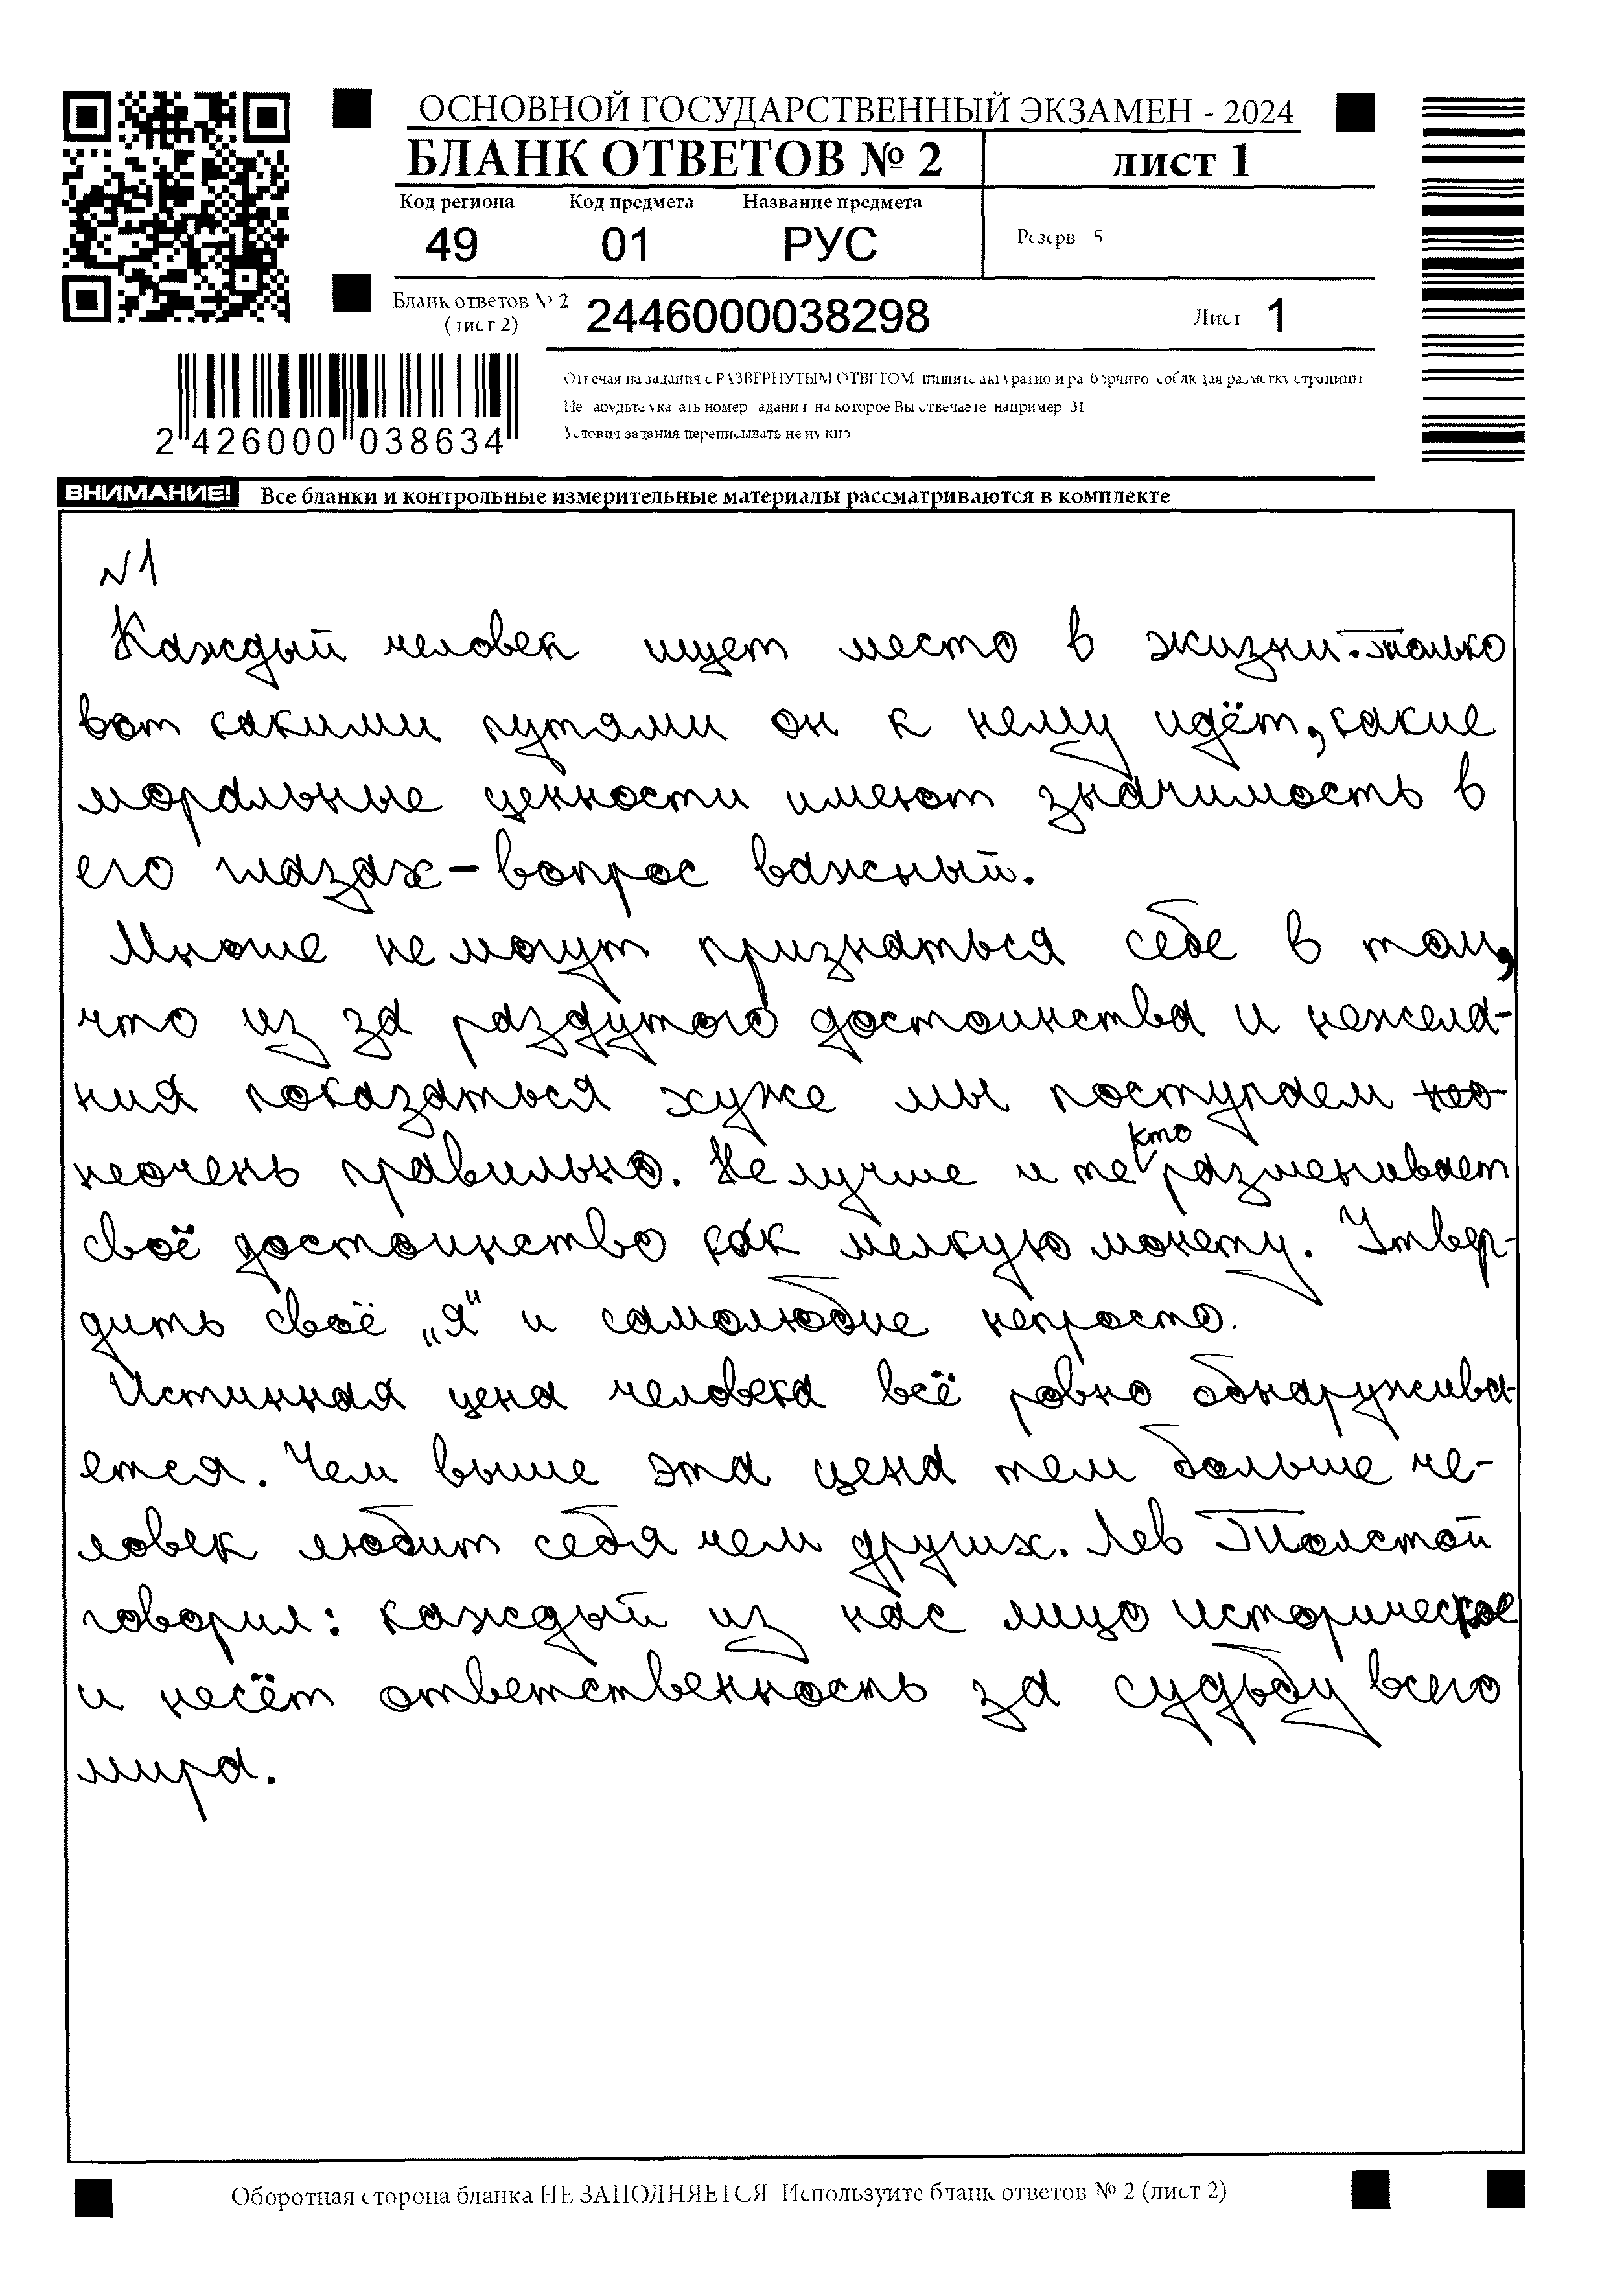 ОСНОВНОЙ ГОСУДАРСТВЕННЫЙ ЭКЗАМЕН - 2024
БЛАНК ОТВЕТОВ № 2 лист 1
Код региона Код предмета Название предмета
49 01 РУС Резерв 5
Бланк ответов № 2
(лист 2) 2446000038298 Лист 1
Отвечая на задания с РАЗВЕРНУТЫМ ОТВЕТОМ пишите аккуратно и разборчиво соблюдая разметку страницы
Не забудьте указать номер задания на которое Вы отвечаете например 31
Условия задания переписывать не нужно
2 426000 038634
ВНИМАНИЕ! Все бланки и контрольные измерительные материалы рассматриваются в комплекте
№1
Каждый человек ищет место в жизни. только
вот какими путями он к нему идёт, какие
моральные ценности имеют значимость в
его глазах – вопрос важный.
Многие не могут признаться себе в том,
что из за раздутого достоинства и нежела-
ния показаться хуже мы поступаем нео
неочень правильно. Не лучше и те кто размениивает
своё достоинство как мелкую монету. Утвер-
дить своё „я“ и самолюбие непросто.
Истинная цена человека всё ровно обнаружива-
ется. Чем выше эта цена тем больше че-
ловек любит себя чем других. Лев Толстой
говорил: каждый из нас лицо историческое
и несёт ответственность за судьбу всего
мира.
Оборотная сторона бланка НЕ ЗАПОЛНЯЕТСЯ Используйте бланк ответов № 2 (лист 2)